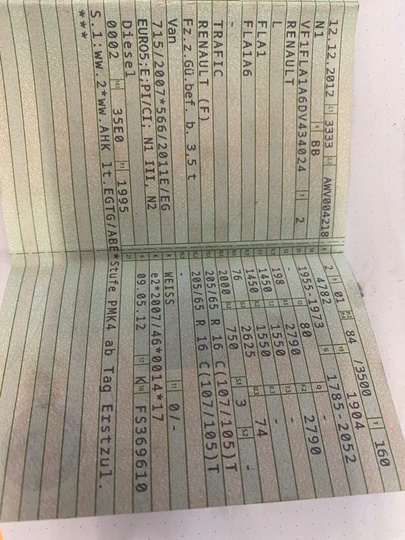 12.12.2012 3333 AWV004218
N1 BB
VF1FLA1A6DV434024 2
RENAULT
L
FLA1
FLA1A6
-
TRAFIC
RENAULT (F)
Fz.z.Gü.bef. b. 3,5 t
Van
715/2007*566/2011E/EG
EURO5;E;PI/CI; N1 III, N2
Diesel
0002 35E0 1995
S.1:ww.2*ww.AHK lt.EGTG/ABE*Stufe PMK4 ab Tag Erstzul.
***
01 84 /3500 160
2 4782 1904
1955-1973 1785-2052
- 80 - 2790
198 2790
1450 1550 -
1450 1550 74
76 2625 -
2000 750 3 -
205/65 R 16 C(107/105)T
205/65 R 16 C(107/105)T
-
WEISS 0/-
e2*2007/46*0014*17
09.05.12 K FS369610